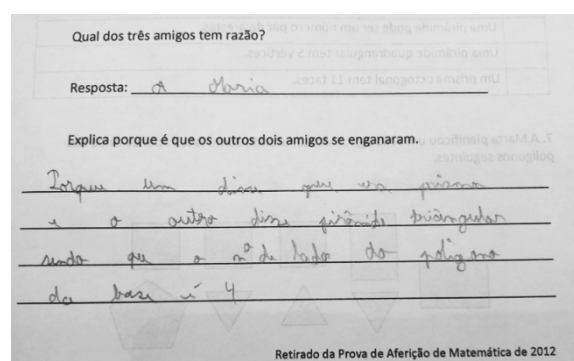 Qual dos três amigos tem razão?
Resposta: A Maria
Explica porque é que os outros dois amigos se enganaram.
Porque um disse que era prisma
e o outro disse pirâmide triângular
sendo que o nº de lados do polígono
da base é 4
Retirado da Prova de Aferição de Matemática de 2012